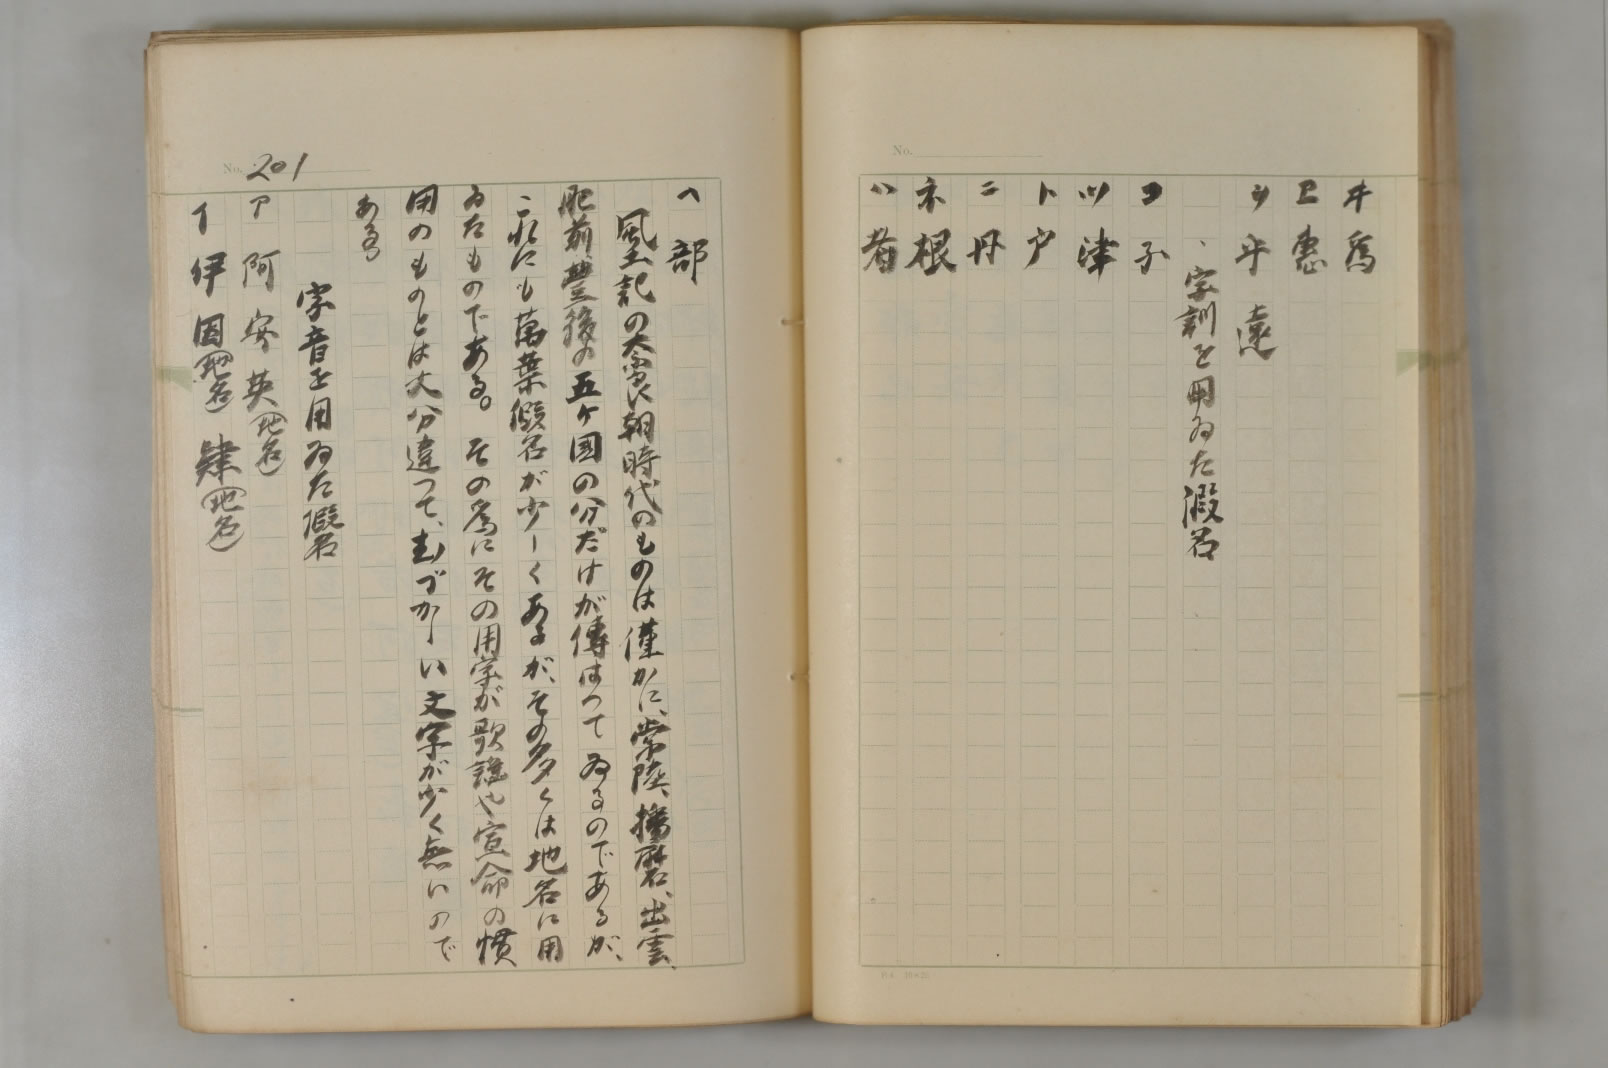 No.
ヰ 爲
ヱ 惠
ヲ 乎 遠
、字訓を用ゐた假名
コ 子
ツ 津
ト 戸
ニ 丹
ネ 根
ハ 者
No. 201
ヘ 部
風土記の大寧朝時代のものは僅かに、常陸、播磨、出雲、
肥前、豊後の五ケ国の分だけが傳はつてゐるのであるが、
これにも萬葉假名が少しくあるが、その多くは地名に用
ゐたものである。その為にその用字が歌謡や宣命の慣
用のものとは大分違つて、むづかしい文字が少く無いので
ある
字音を用ゐた假名
ア 阿 安 英(地名)
イ 伊 因(地名) 肄(地名)